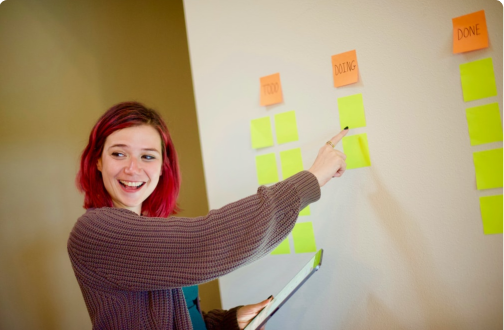 TODO
DOING
DONE